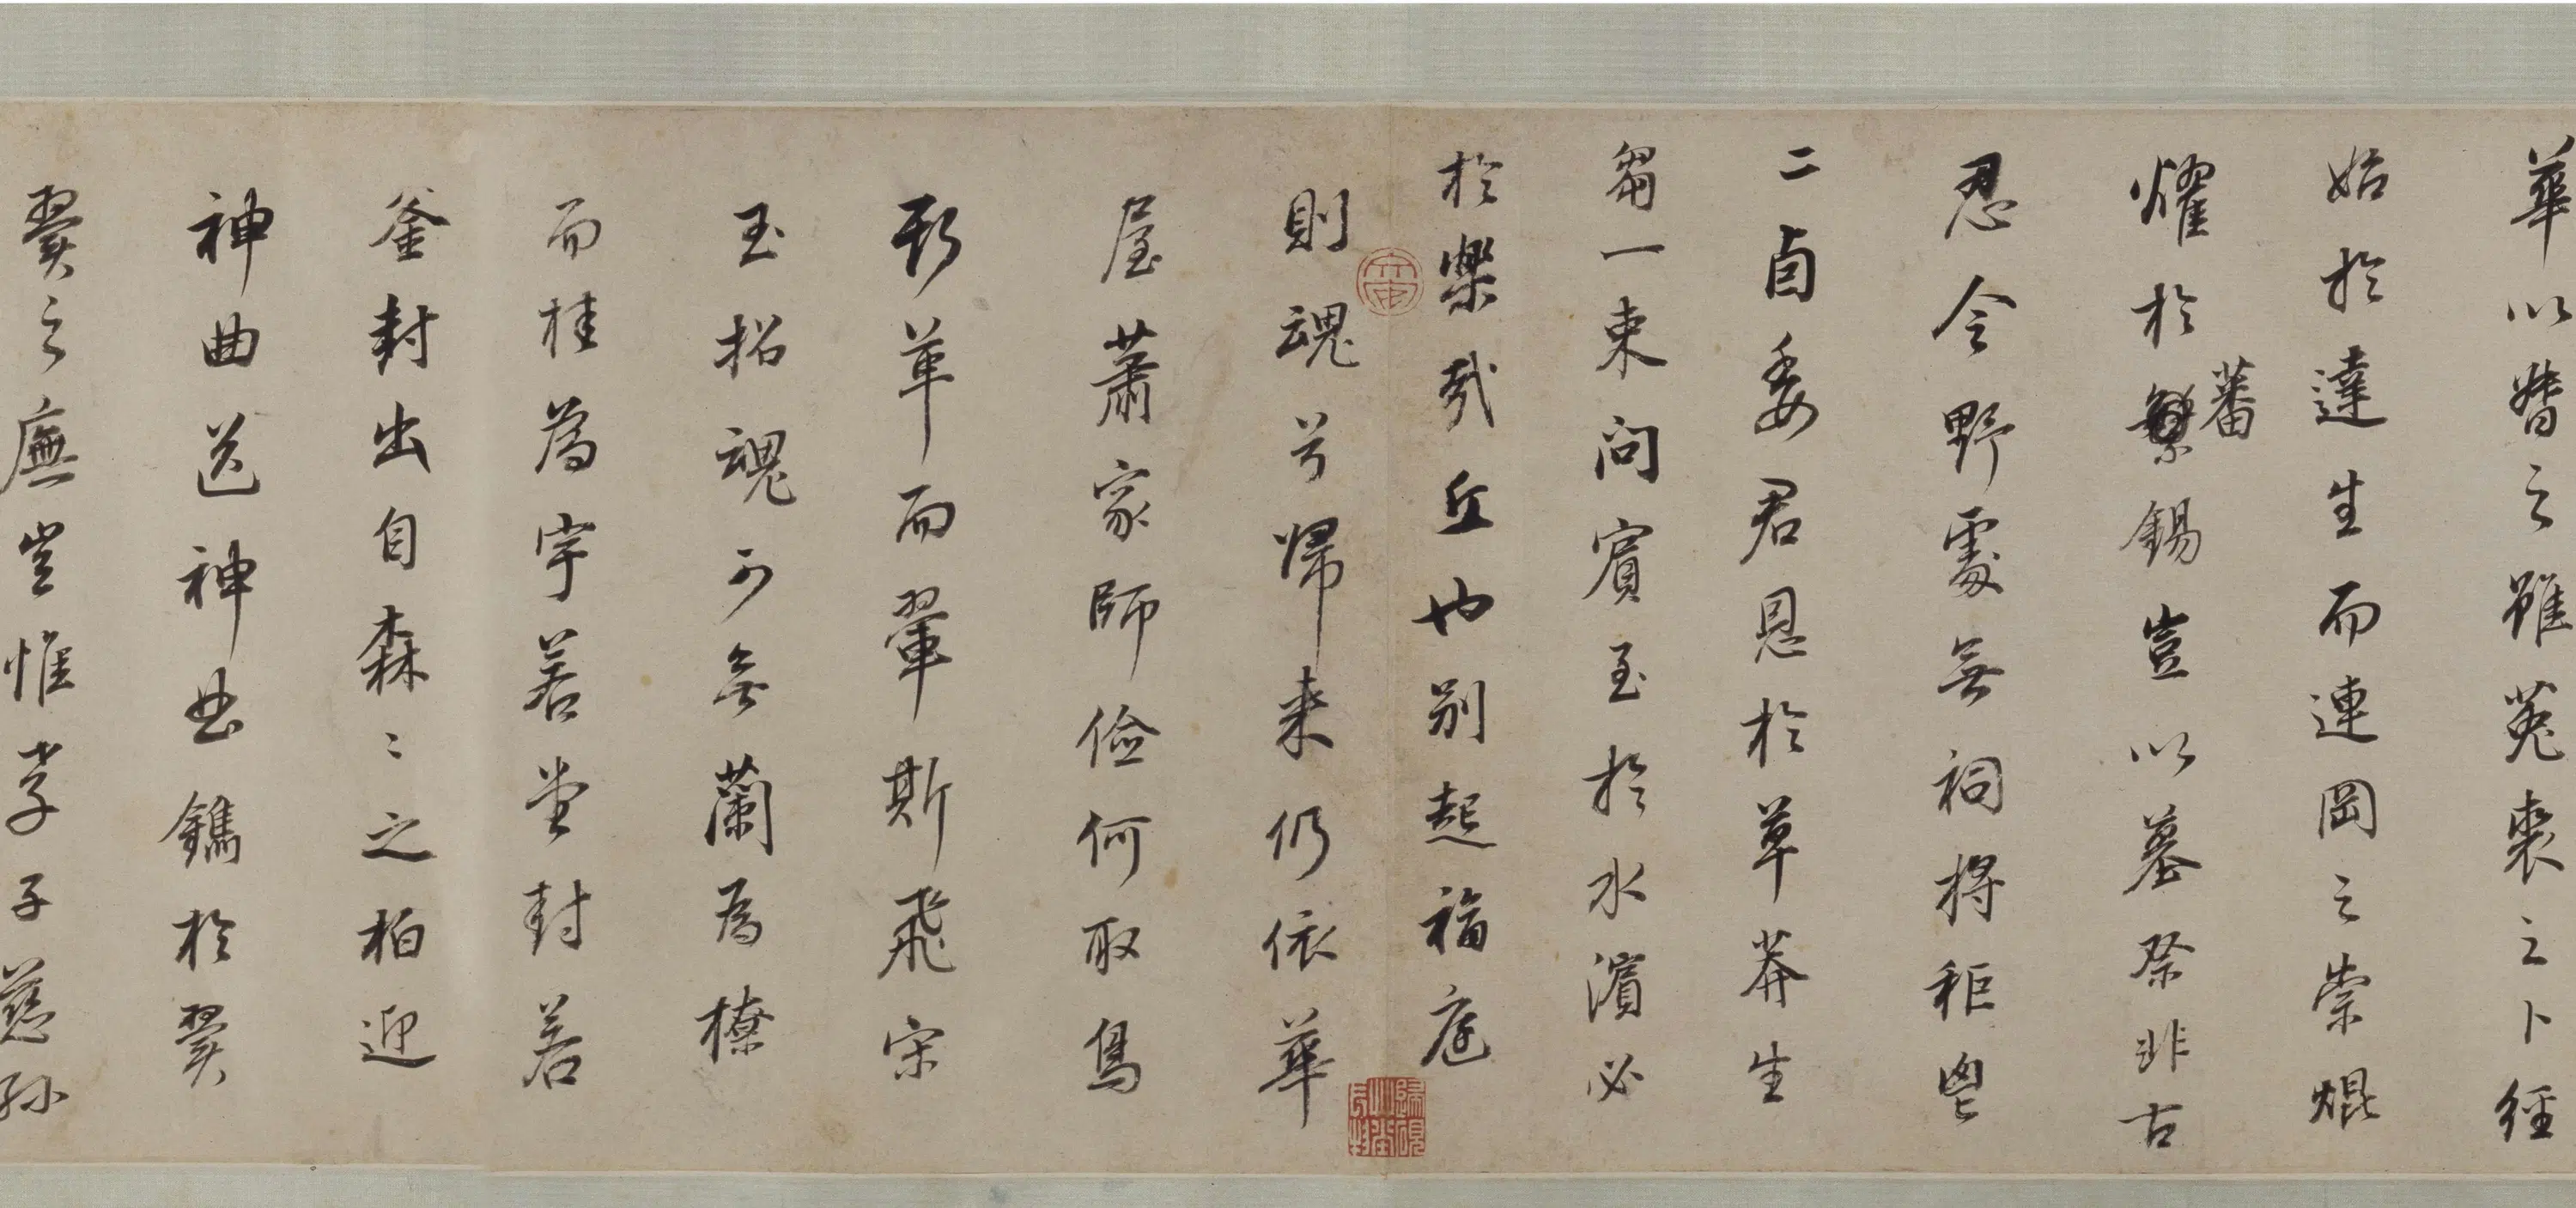 華以瞀之雖菟裘之卜經
始於達生而連岡之崇焜
燿於蕃錫豈以墓祭非古
忍令野處無祠將秬鬯
二卣委君恩於草莽生
芻一束問賓至於水濱必
於樂哉丘也別起福庭
則魂兮歸來仍依華
屋蕭家師儉何取鳥
革而翬斯飛宋
玉招魂可無蘭為橑
而桂為宇若堂封若
釜封出自森〻之柏迎
神曲送神曲鐫於翼
翼之廡豈惟孝子慈孫